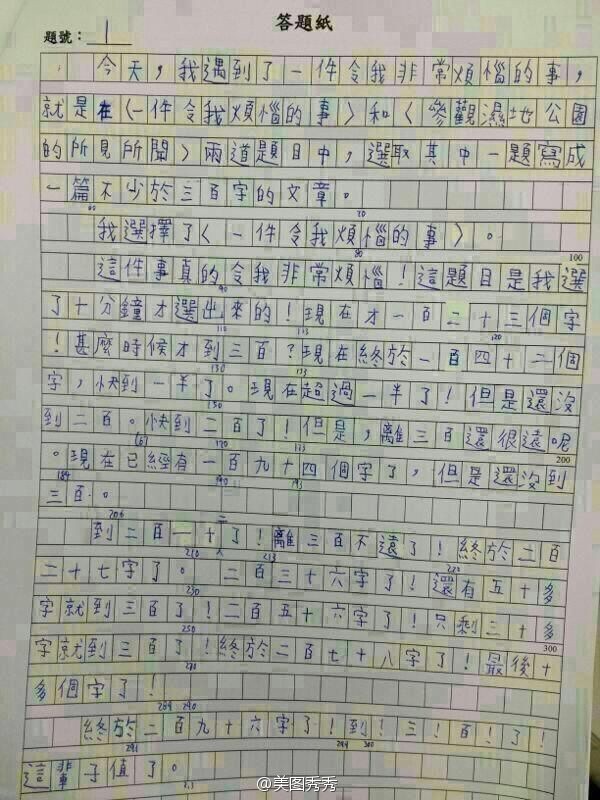 答題紙
題號：1
今天，我遇到了一件令我非常煩惱的事，
就是在〈一件令我煩惱的事〉和〈參觀濕地公園
的所見所聞〉兩道題目中，選取其中一題寫成
一篇不少於三百字的文章。
60 70
我選擇了〈一件令我煩惱的事〉。
80 100
這件事真的令我非常煩惱！這題目是我選
90
了十分鐘才選出來的！現在才一百二十三個字
110 113 120
！甚麼時候才到三百？現在終於一百四十二個
130 133
字，快到一半了。現在超過一半了！但是還沒
150
到二百。快到二百了！但是，離三百還很遠呢
161 170 173 200
。現在已經有一百九十四個字了，但是還沒到
184 190 193
三百。
206 二
到二百一十了！離三百不遠了！終於二百
210 213 220
二十七字了。二百三十六字了！還有五十多
230
字就到三百了！二百五十六字了！只剩三十多
250 300
字就到三百了！終於二百七十八字了！最後十
270
多個字了！
284 290
終於二百九十六字了！到！三！百！了！
291 299 300
這輩子值了。
313
@美图秀秀